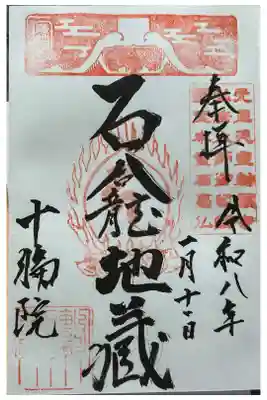 奉拝 令和八年
一月十一日
石龕地藏
十輪院